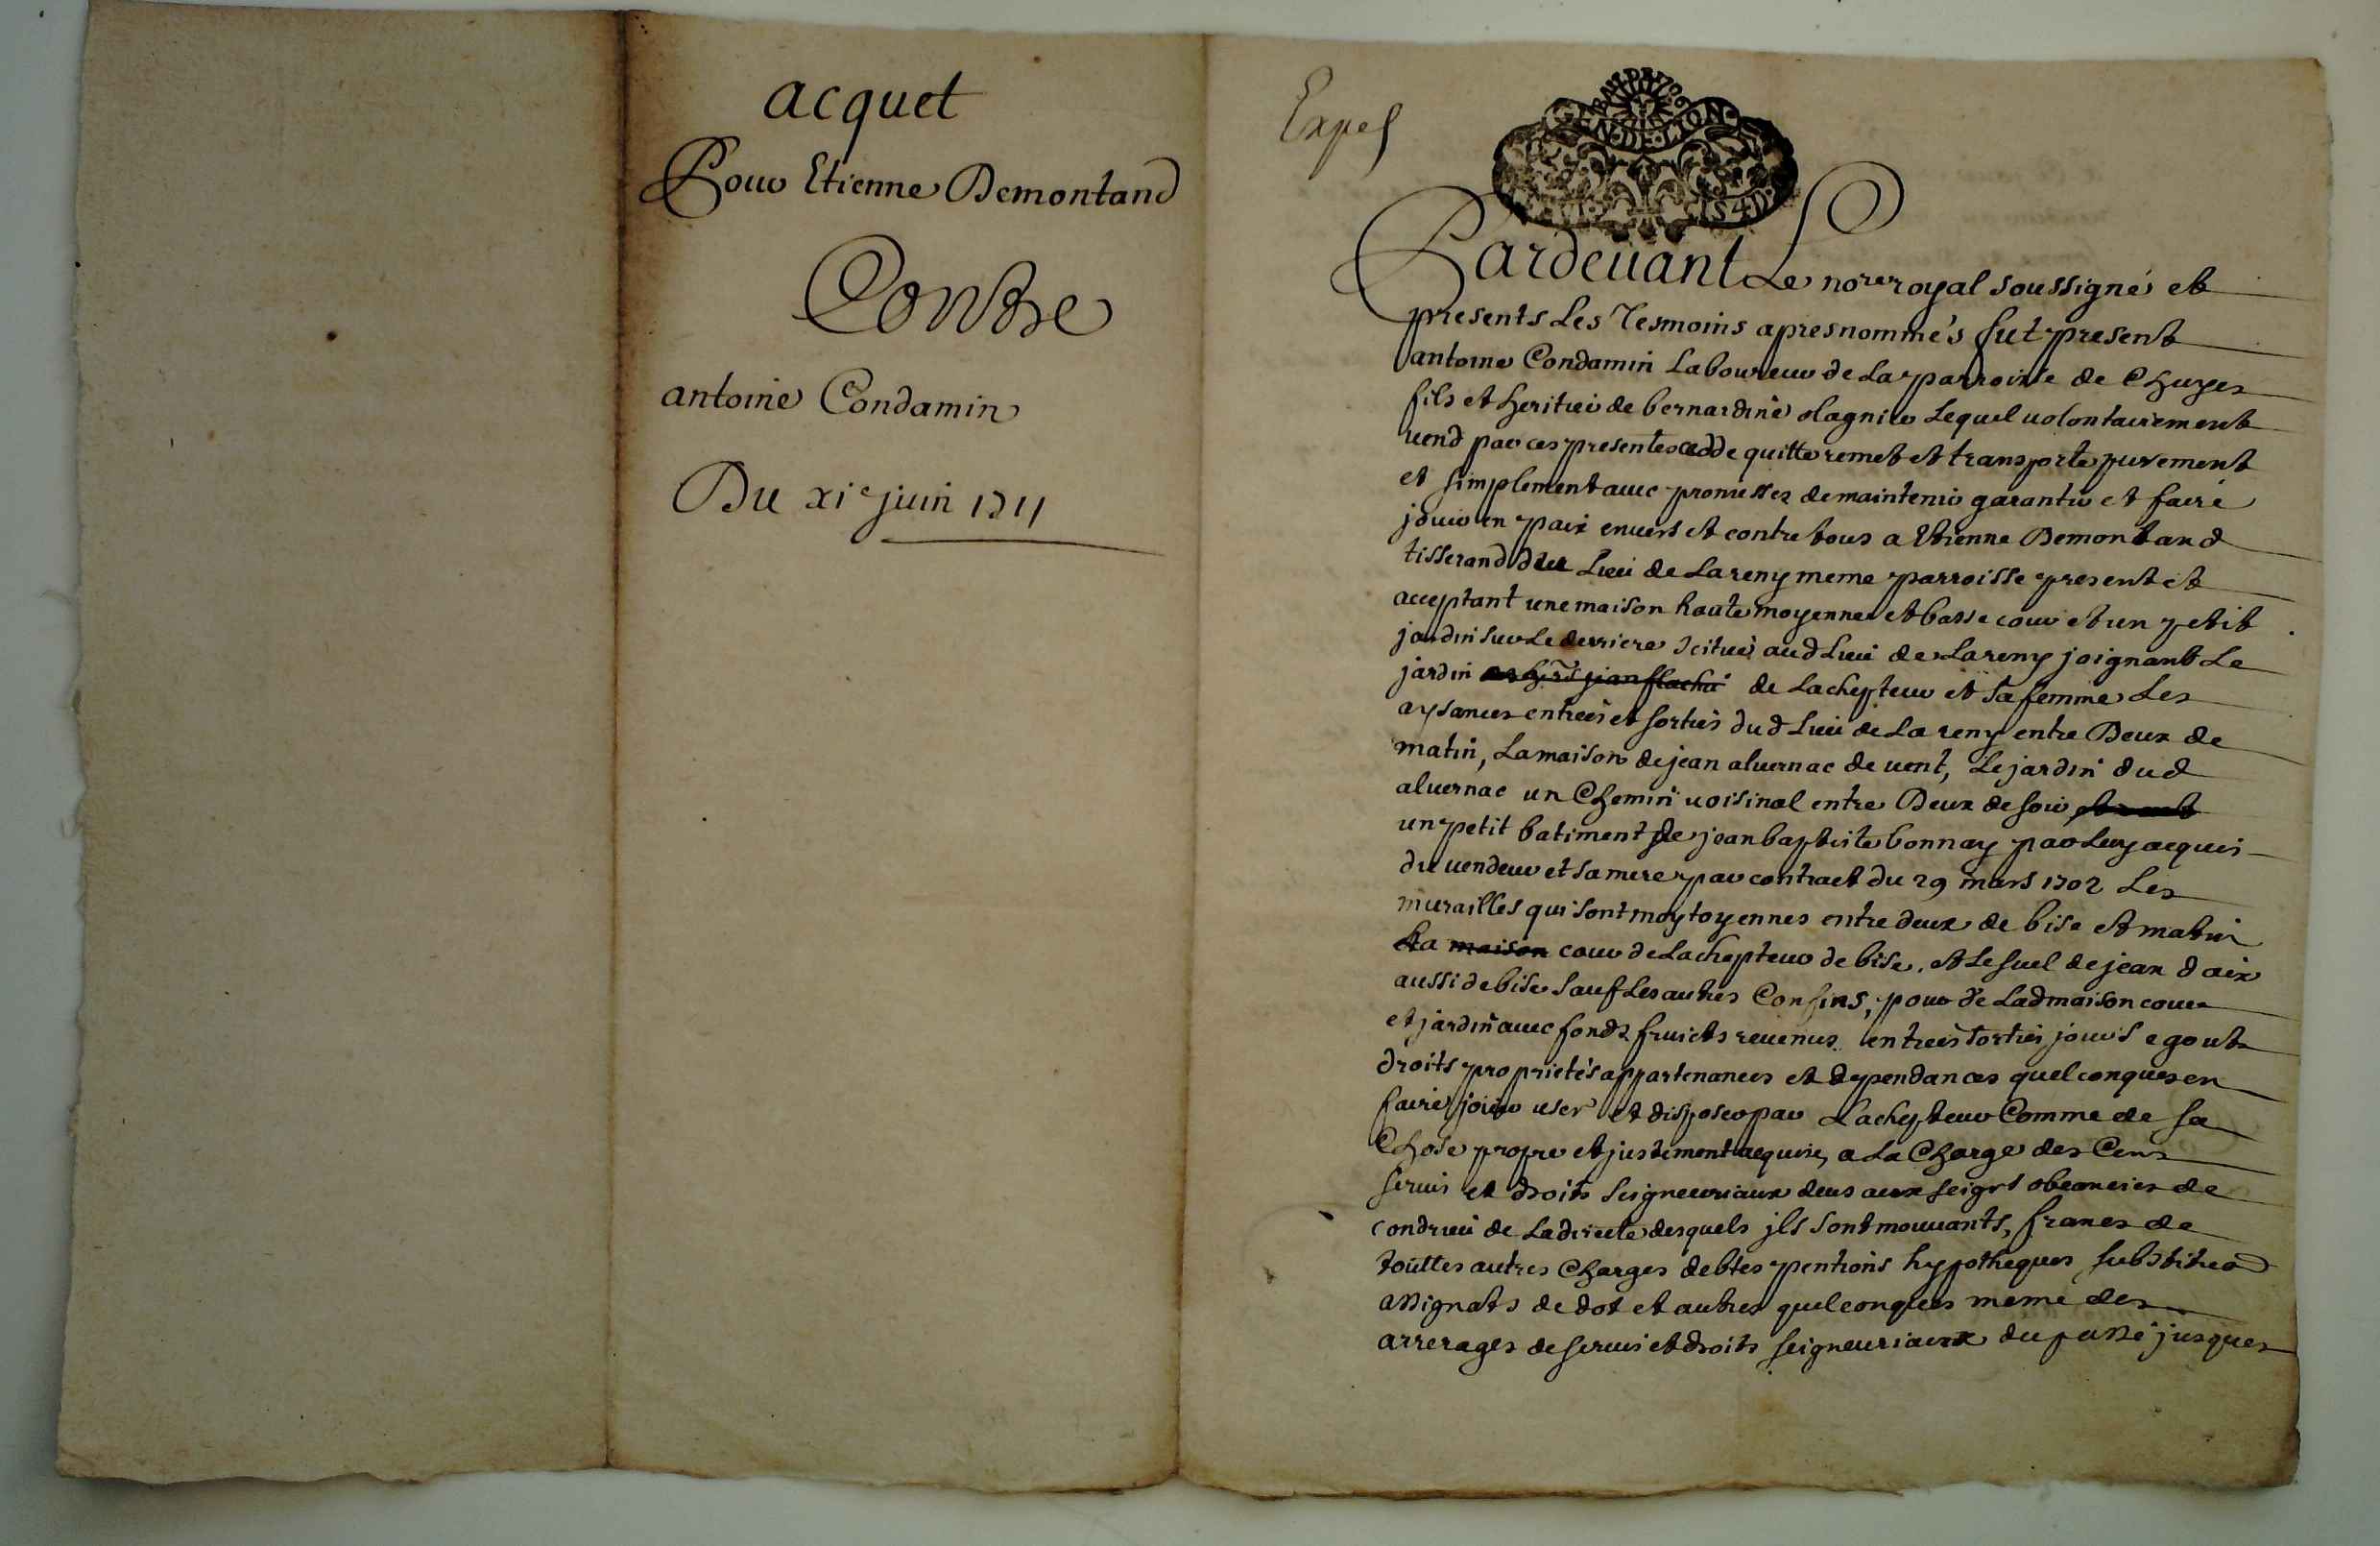 acquet
Pour Etienne Demontand
Contre
antoine Condamin
Du xie juin 1711
Exped
GEN DE LION
Pardeuant Le norẽ royal soussigné et
presents Les Tesmoins apres nommés fut present
antoine Condamin Laboureur de La parroisse de Chuyes
fils et heritier de bernardine olagnier Lequel uolontairement
uend par ces presentes cedde quitte remet et transporte purement
et simplement auec promesses de maintenir garantir et faire
jouir en paix enuers et contre tous a Etienne Demontand
tisserand du Lieu de Lareny meme parroisse present et
acceptant une maison haute moyenne et basse cour et un petit
jardin sur Le derriere scitué aud Lieu de Lareny joignant Le
jardin de Lachepteur et sa femme Les
aysances entrées et sorties dud Lieu de La reny entre Deux de
matin, La maison de jean aluernac de uent, Le jardin dud
aluernac un Chemin uoisinal entre Deux de soir
un petit batiment de jean baptiste bonnay par Luy acquis
du uendeur et sa mere par contract du 29 mars 1702 Les
murailles qui sont moytoyennes entre deux de bise et matin
La maison cour de Lachepteur de bise, et Le suel de jean daix
aussi de bise sauf Les autres Confins, pour de Lad maison cour
et jardin auec fonds fruicts reuenus entrées sorties jours egouts
droits proprietés appartenances et dependances quelconques en
faire jouir user et disposer par Lachepteur Comme de sa
Chose propre et justement acquise, a La Charge des Cens
seruis et droits seigneuriaux deus aux seigrs obeanciers de
condrieu de La directe desquels jls sont mouuants, francs de
touttes autres Charges debtes pentions hypotheques substitued
assignats de dot et autres quelconques meme des
arrerages de seruis et droits seigneuriaux du passé jusques